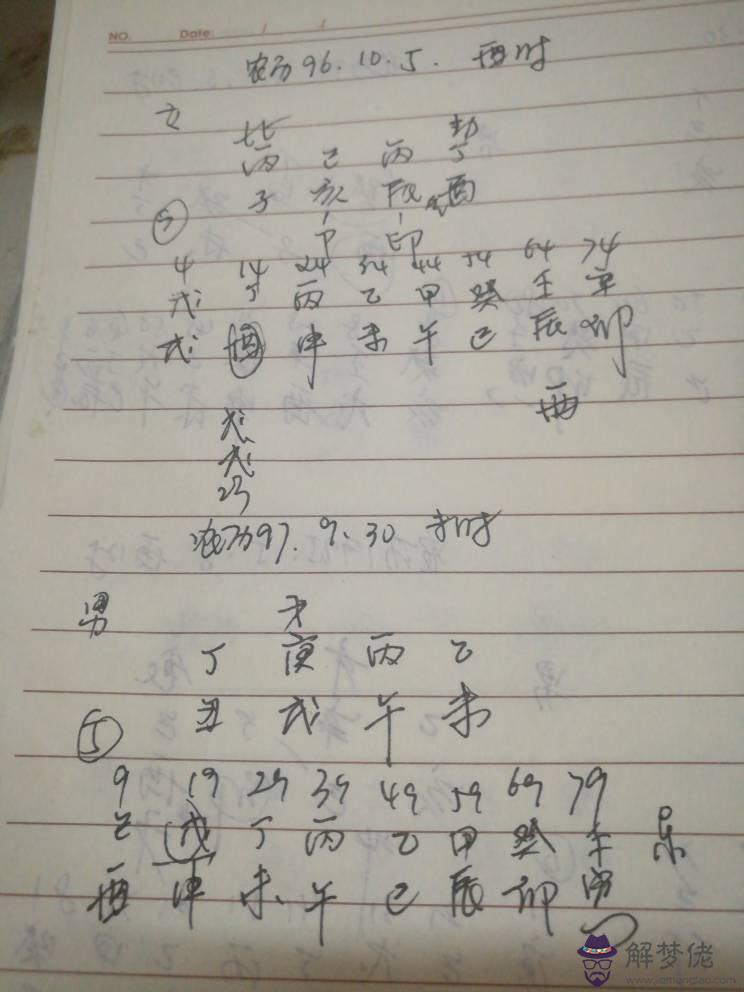 NO. Date: / /
农历96.10.5. 酉时
女
比 劫
丙 己 丙 丁
子 亥 辰 酉
卩 印
4 14 24 34 44 54 64 74
戊 丁 丙 乙 甲 癸 壬 辛
戌 酉 申 未 午 巳 辰 卯
酉
戊
戌
农历97.9.30 未时
男 才
丁 庚 丙 乙
丑 戌 午 未
5
9 19 29 39 49 59 69 79
己 戊 丁 丙 乙 甲 癸 壬
酉 申 未 午 巳 辰 卯 寅
解梦佬
www.jiemenglao.com